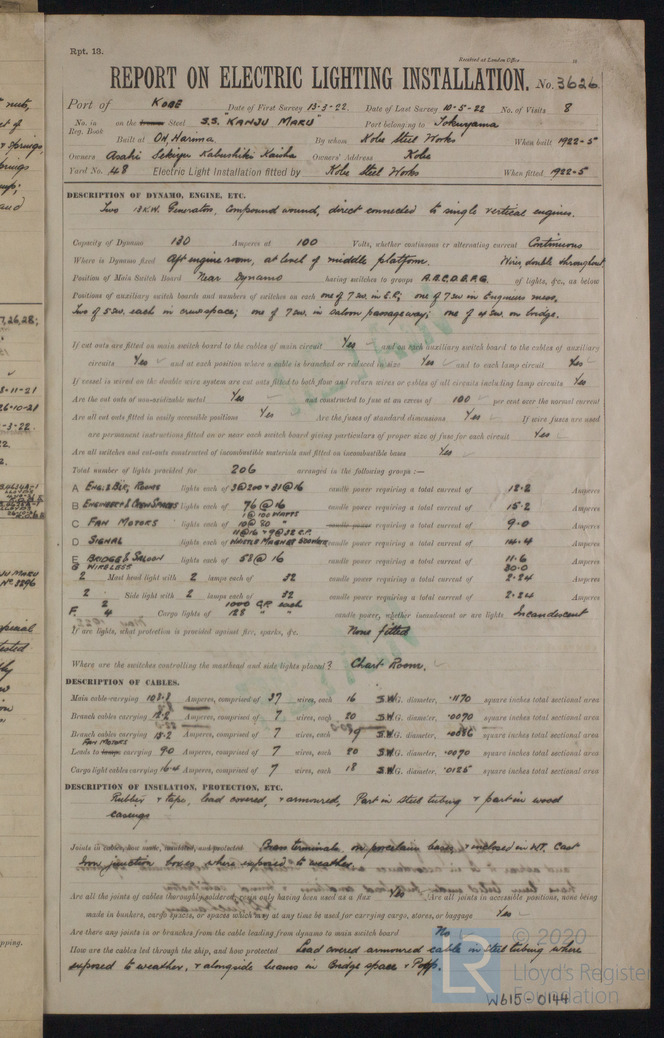 Rpt. 13.
Received at London Office
REPORT ON ELECTRIC LIGHTING INSTALLATION. No. 3626
Port of KOBE Date of First Survey 13-3-22 Date of Last Survey 10-5-22 No. of Visits 8
No. in Reg. Book on the Steel S.S. "KANJU MARU" Port belonging to Tokuyama
Built at OH Harima By whom Kobe Steel Works When built 1922-5
Owners Asahi Sekiyu Kabushiki Kaisha Owners' Address Kobe
Yard No. 48 Electric Light Installation fitted by Kobe Steel Works When fitted 1922-5
DESCRIPTION OF DYNAMO, ENGINE, ETC.
Two 13 K.W. Generators, Compound wound, direct connected to single vertical engines.
Capacity of Dynamo 130 Amperes at 100 Volts, whether continuous or alternating current Continuous
Where is Dynamo fixed Aft engine room, at level of middle platform. Wires double throughout
Position of Main Switch Board Near Dynamo having switches to groups A.B.C.D.E.F.G. of lights, &c., as below
Positions of auxiliary switch boards and numbers of switches on each one of 7 sw. in E.R; one of 7 sw in Engineers mess,
Two of 5 sw. each in crew space; one of 7 sw. in saloon passageway; one of 4 sw. on bridge.
If cut outs are fitted on main switch board to the cables of main circuit Yes and on each auxiliary switch board to the cables of auxiliary
circuits Yes and at each position where a cable is branched or reduced in size Yes and to each lamp circuit Yes
If vessel is wired on the double wire system are cut outs fitted to both flow and return wires or cables of all circuits including lamp circuits Yes
Are the cut outs of non-oxidizable metal Yes and constructed to fuse at an excess of 100 per cent over the normal current
Are all cut outs fitted in easily accessible positions Yes Are the fuses of standard dimensions Yes If wire fuses are used
are permanent instructions fitted on or near each switch board giving particulars of proper size of fuse for each circuit Yes
Are all switches and cut-outs constructed of incombustible materials and fitted on incombustible bases Yes
Total number of lights provided for 206 arranged in the following groups :—
A Eng. & Blr. Rooms lights each of 3@200 + 31@16 candle power requiring a total current of 12.2 Amperes
B Engineers & Crew Spaces lights each of 76@16 candle power requiring a total current of 15.2 Amperes
1@100 WATTS
C FAN MOTORS lights each of 10@30 " candle power requiring a total current of 9.0 Amperes
11@16 + 9@32 C.P.
D SIGNAL lights each of candle power requiring a total current of 14.4 Amperes
E BRIDGE & SALOON lights each of 58@16 candle power requiring a total current of 11.6 Amperes
G WIRELESS 30.0
2 Mast head light with 2 lamps each of 32 candle power requiring a total current of 2.24 Amperes
2 Side light with 2 lamps each of 32 candle power requiring a total current of 2.24 Amperes
2 1000 C.P. each
F. 4 Cargo lights of 128 " " candle power, whether incandescent or arc lights Incandescent
If arc lights, what protection is provided against fire, sparks, &c. None fitted
Where are the switches controlling the masthead and side lights placed? Chart Room.
DESCRIPTION OF CABLES.
Main cable carrying 108.8 Amperes, comprised of 37 wires, each 16 S.W.G. diameter, .1170 square inches total sectional area
Branch cables carrying 12.2 Amperes, comprised of 7 wires, each 20 S.W.G. diameter, .0070 square inches total sectional area
Branch cables carrying 15.2 Amperes, comprised of 7 wires, each 19 S.W.G. diameter, .0086 square inches total sectional area
FAN MOTORS
Leads to carrying 9.0 Amperes, comprised of 7 wires, each 20 S.W.G. diameter, .0070 square inches total sectional area
Cargo light cables carrying 16.4 Amperes, comprised of 7 wires, each 18 S.W.G. diameter, .0125 square inches total sectional area
DESCRIPTION OF INSULATION, PROTECTION, ETC.
Rubber & tape, lead covered, & armoured, Part in steel tubing & part in wood
casings
Joints in cables, how made, insulated, and protected Brass terminals on porcelain bases, & enclosed in WT. Cast
Iron junction boxes where exposed to weather.
Are all the joints of cables thoroughly soldered, resin only having been used as a flux Yes Are all joints in accessible positions, none being
made in bunkers, cargo spaces, or spaces which may at any time be used for carrying cargo, stores, or baggage Yes
Are there any joints in or branches from the cable leading from dynamo to main switch board No
How are the cables led through the ship, and how protected Lead covered armoured cable in steel tubing where
exposed to weather, & alongside beams in Bridge space & Poop.
© 2020
LR
Lloyd's Register
Foundation
W615-0144